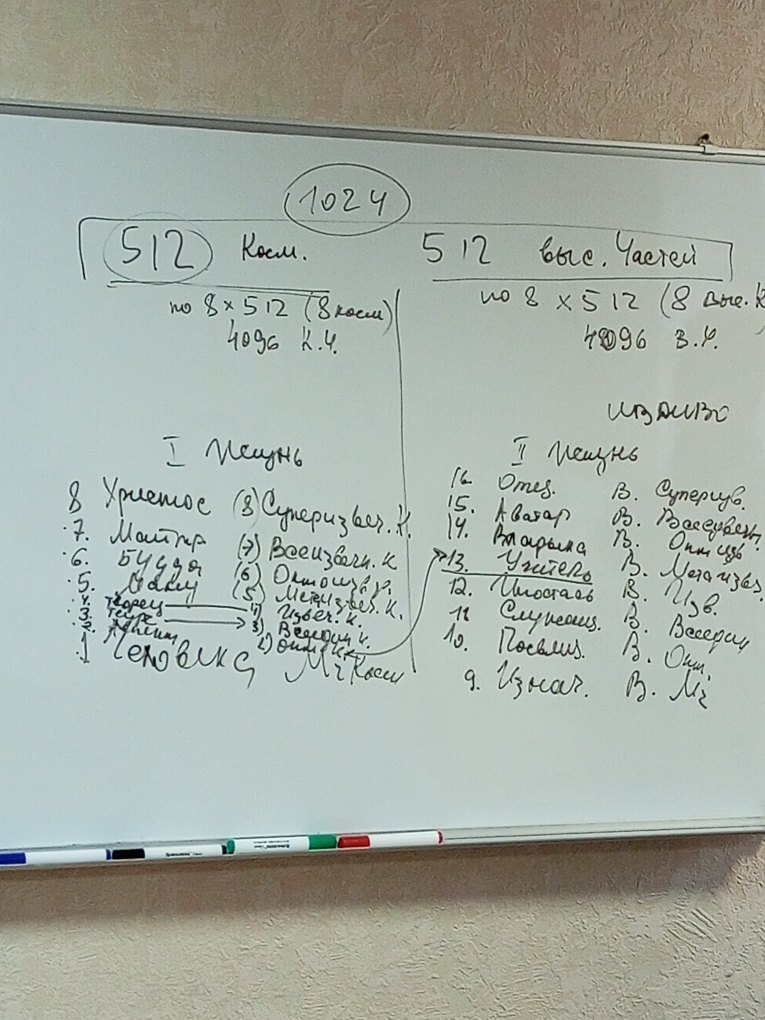 1024
512 Косм.
по 8 × 512 (8 косм)
4096 К.Ч.
I Жизнь
8 Христос (8) Суперизвеч. К.
7. Майтр (7) Всеизвечн. К
6. Будда (6) Октоизв. К.
5. Ману (5) Метаизвеч. К.
4. Творец (4) Извеч. К.
3. Теург (3) Всеедин К.
2. (2) Окт К.
1 Человека Мг Косм
512 выс. Частей
по 8 × 512 (8 выс. К
4096 В.Ч.
ИВДИВО
II Жизнь
16. Отец. В. Суперизв.
15. Аватар В. Всеизвечн
14. Владыка В. Окт изв
13. Учитель В. Мета извеч.
12. Ипостась В. Изв.
11 Служащ. В. Всеедин
10. Посвящ. В. Окт.
9. Изнач. В. Мг